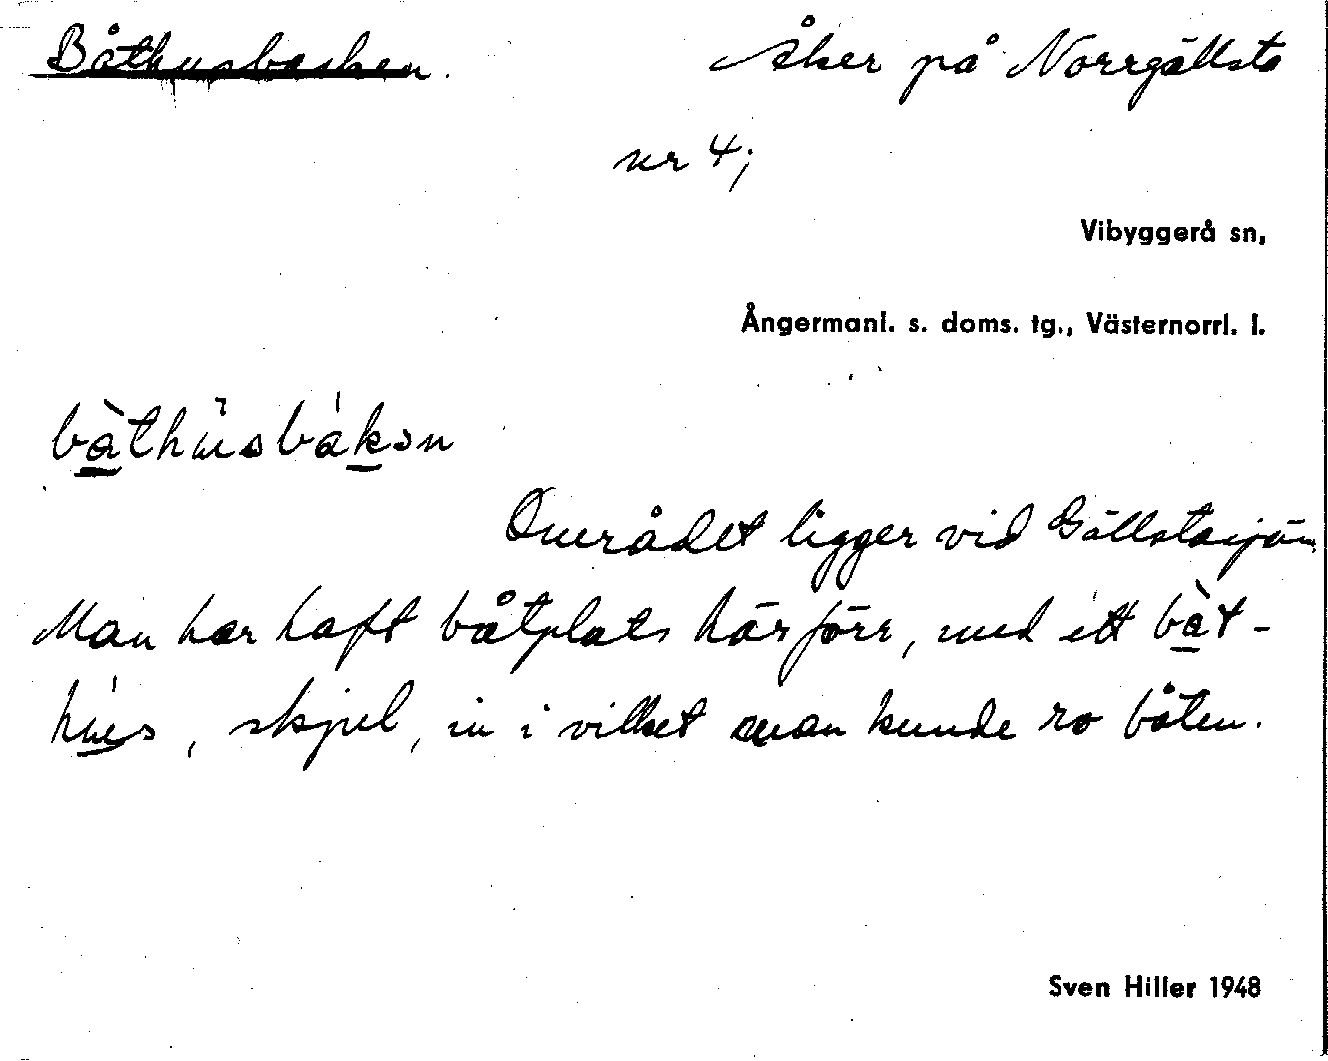 Båthusbacken.
Åker på Norrgällsta
nr 4;
Vibyggerå sn,
Ångermanl. s. doms. tg., Västernorrl. l.
båthusbakən
Området ligger vid Gällstasjön.
Man har haft båtplats här förr, med ett båt-
hus, skjul, in i vilket man kunde ro båten.
Sven Hiller 1948